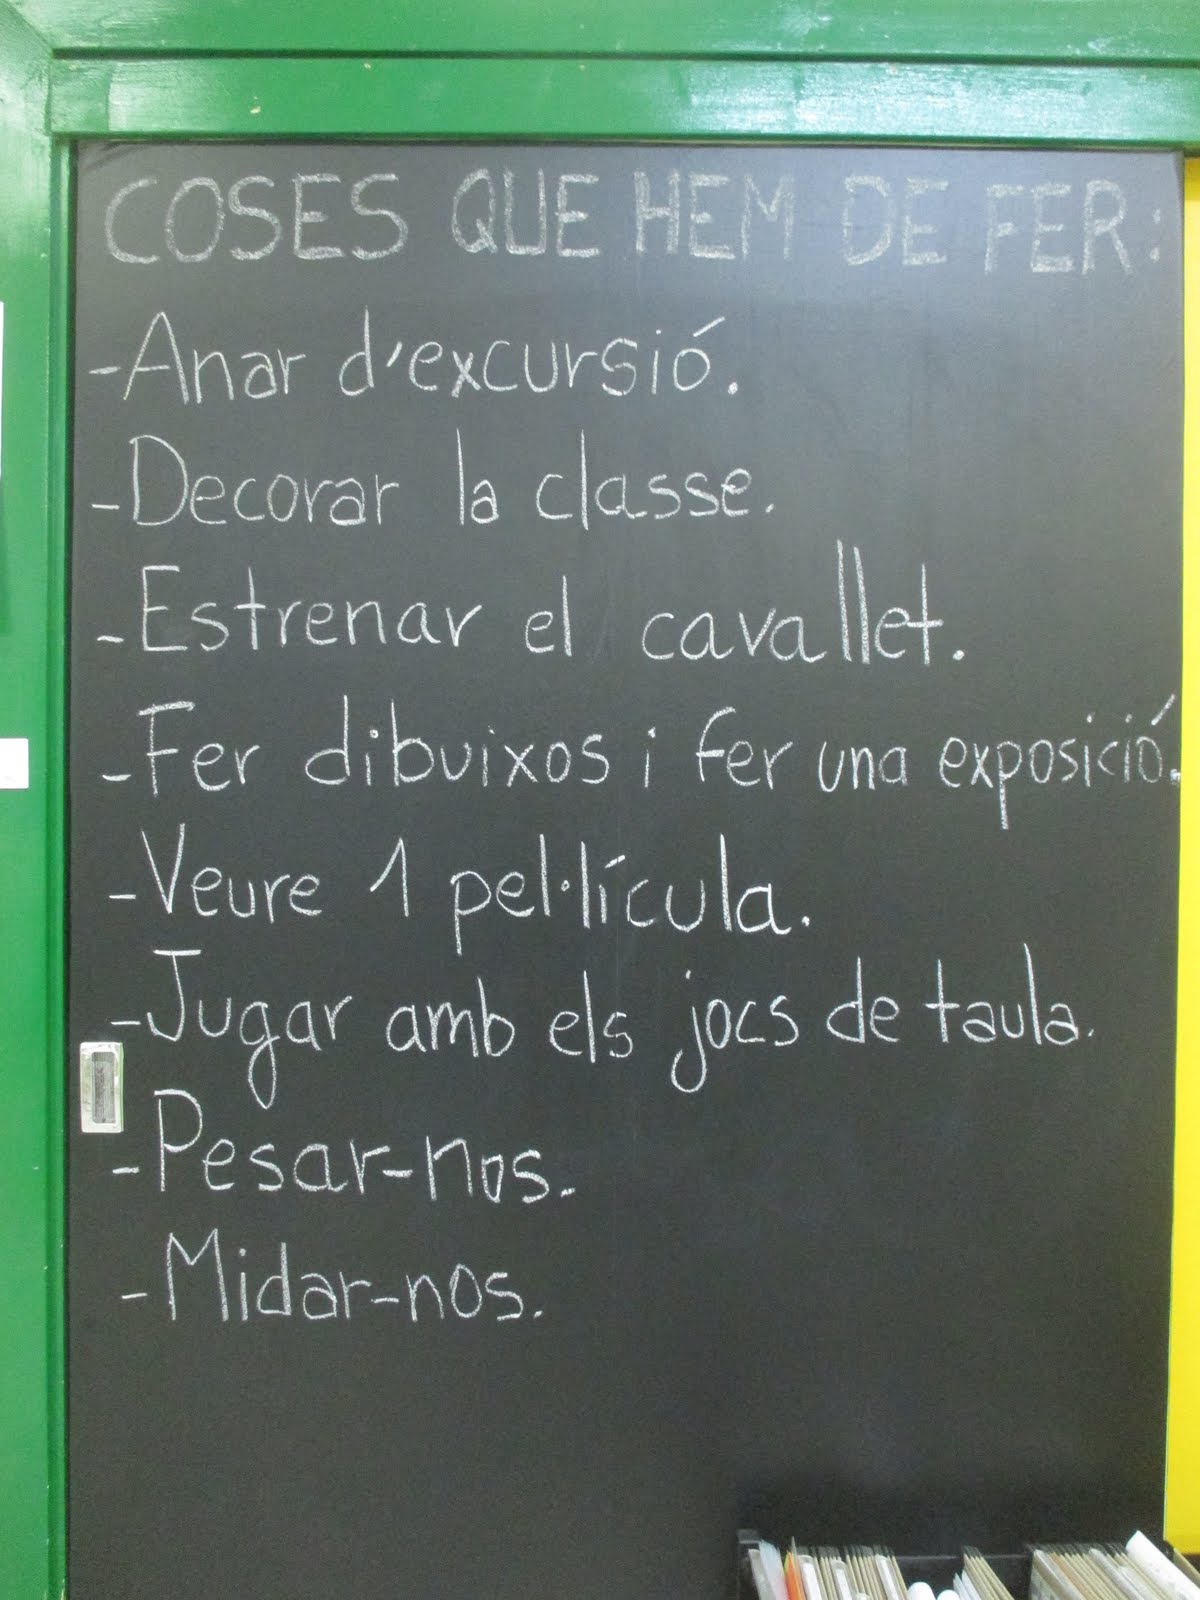 COSES QUE HEM DE FER:
-Anar d'excursió.
-Decorar la classe.
-Estrenar el cavallet.
-Fer dibuixos i fer una exposició.
-Veure 1 pel·lícula.
-Jugar amb els jocs de taula.
-Pesar-nos.
-Midar-nos.